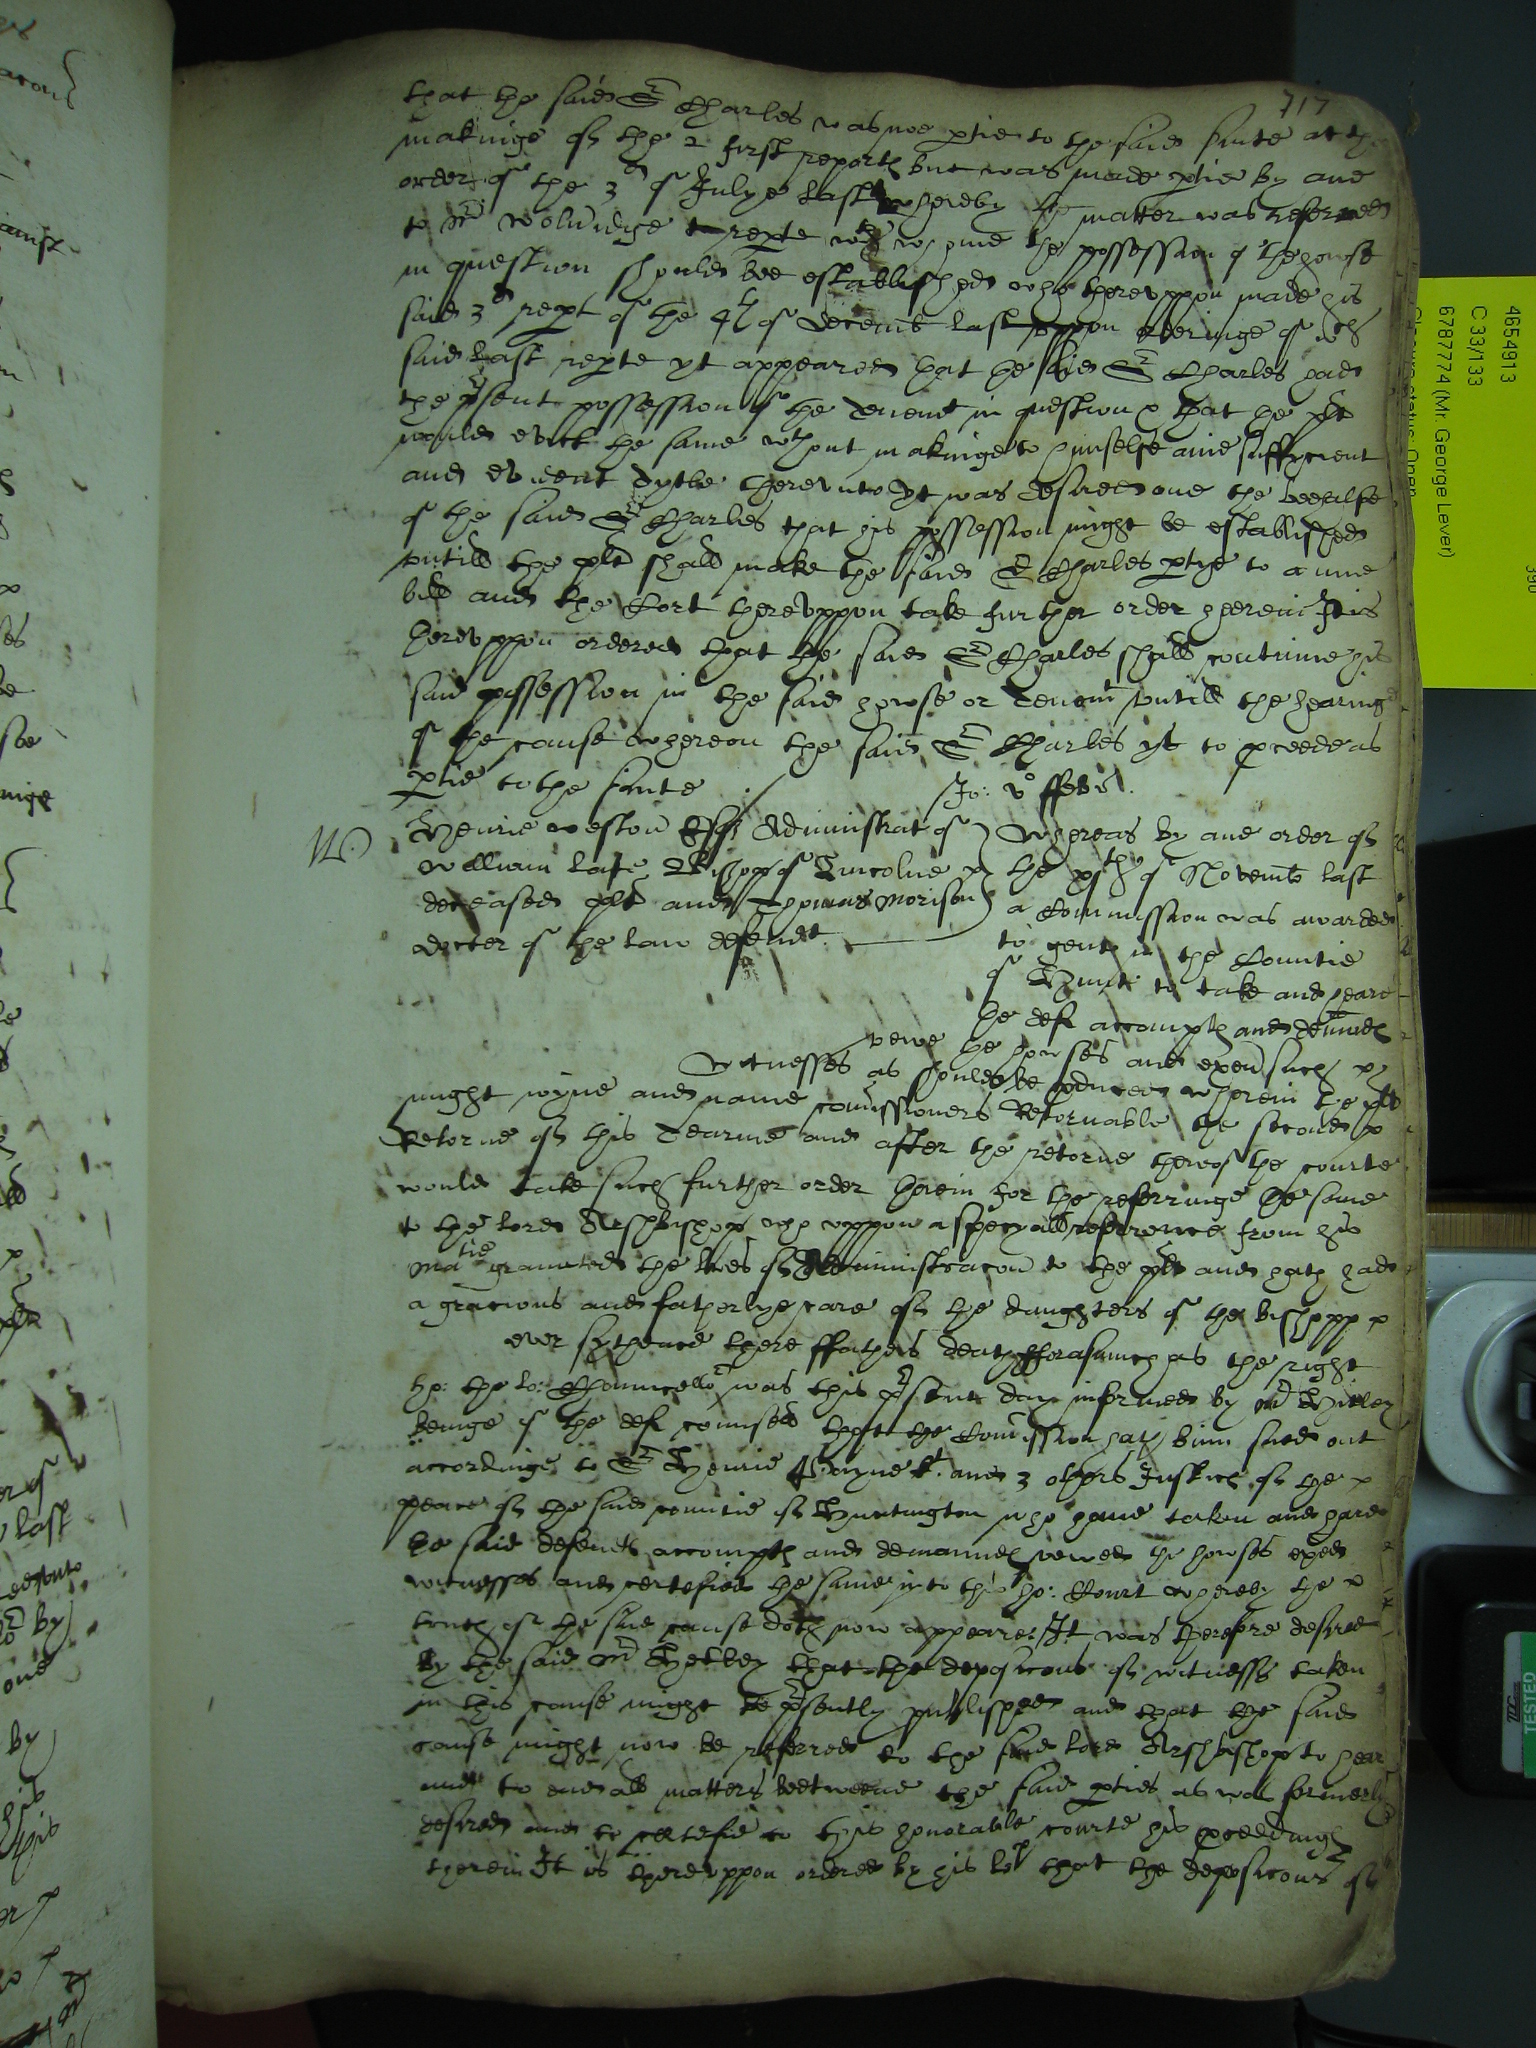 717
that the said Sr Charles was noe ptie to the said suite at the
makinge of the 2 first reports but was made ptie by one
order of the 3d of Julye last whereby the matter was referred
to Mr Wolvridge to repte wth whome the possession of the howse
in question should bee established who therevppon made his
said 3d repte of the 4th of Decemb last vppon openinge of wch
said last repte yt appeared that the said Sr Charles had
the psent possession of the Tenemt in question & that the plt
would evict the same wthout makinge to himselfe anie suffycient
and evident Tytle therevnto Yt was desired one the beehalfe
of the said Sr Charles that his possession might be established
vntill the plt shall make the said Sr Charles ptye to a new
bill and the Cort therevppon take further order therein It is
therevppon ordered that the said Sr Charles shall continue his
said possession in the said howse or Tenemt vntill the hearinge
of the cause whereon the said Sr Charles ys to pceede as
ptie to the suite
Henrie Weston Esqr Administrat of
William late Bishop of Lincolne
deceased plt and Thomas Morison
docter of the law defendt
Whereas by one order of
the of Novemb last
a Commission was awarded
to gent in the Countie
of Hunt: to take and heare
the deft accompth and demands
vewe the howses and exen such
witnesses as should be pduced wherein the plt
might ioyne and name comissioners Retornable the second
Retorne of this Tearme and after the retorne thereof the courte
would take such further order therein for the referringe the same
to the lord Arshbishop who vppon a specyall referrence from his
matie graunted the lres of Administracon to the plt and hath had
a gracious and fatherlye care of the daughters of the bishopp
ever sythence there ffathers death fforasmuch as the right
ho: the lo: Chauncellor was this psent day informed by Mr Hitley
beinge of the deft counsell that the Comission hath bine sued out
accordinge to Sr Henrie Payne kt and 3 others Justices of the
peace of the said countie of Huntington who have taken and hard
the said defendts accompth and demannds vewed the howses exed
witnesses and certefied the same into this ho: Court whereby the
truth of the said cause doth now appeare It was therefore desired
by the said Mr that the deposicons of witnesses taken
in this cause might be psently published and that the said
cause might now be referred to the said lord Arshbishop to hear
and to end all matters beetweene the said pties as was formerly
desired and to certefie to this honorable courte his pceedings
therein It is therevppon ordered by his lop that the deposicons of
4654913
C 33/133
6787774 (Mr. George Lever)
TESTED